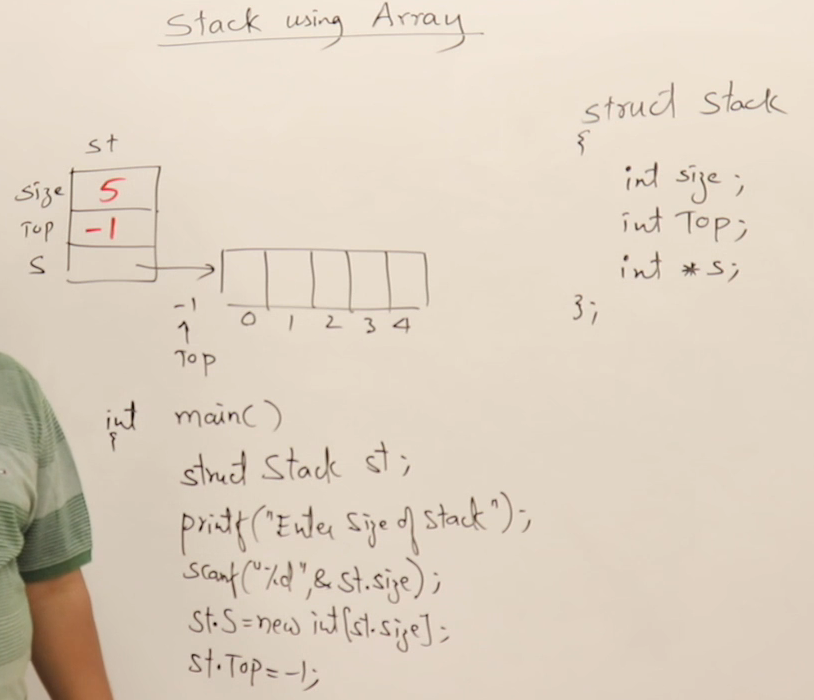 Stack using Array
st
size 5
Top -1
S
-1
0 1 2 3 4
Top
struct Stack
{
int size;
int Top;
int *S;
};
int main()
{
struct Stack st;
printf("Enter Size of Stack");
scanf("%d",&st.size);
st.S=new int[st.size];
st.Top=-1;